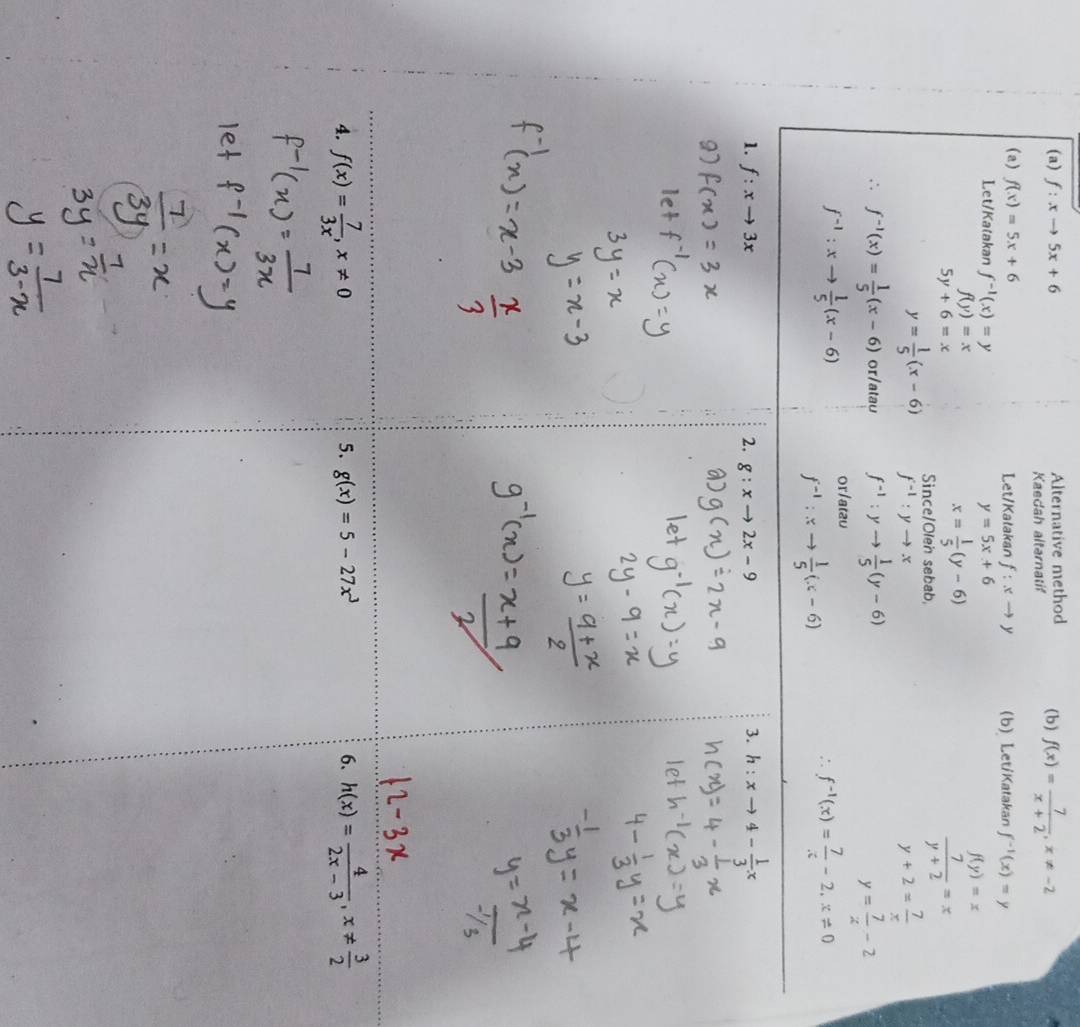 (a) f : x → 5x + 6
(a) f(x) = 5x + 6
Let/Katakan f⁻¹(x) = y
f(y) = x
5y + 6 = x
y = 1/5 (x − 6)
∴ f⁻¹(x) = 1/5 (x − 6) or/atau
f⁻¹ : x → 1/5 (x − 6)
Alternative method
Kaedah alternatif
Let/Katakan f : x → y
y = 5x + 6
x = 1/5 (y − 6)
Since/Oleh sebab,
f⁻¹ : y → x
f⁻¹ : y → 1/5 (y − 6)
or/atau
f⁻¹ : x → 1/5 (x − 6)
(b) f(x) = 7/(x + 2), x ≠ −2
(b) Let/Katakan f⁻¹(x) = y
f(y) = x
7/(y + 2) = x
y + 2 = 7/x
y = 7/x − 2
∴ f⁻¹(x) = 7/x − 2, x ≠ 0
1. f : x → 3x
a) f(x) = 3x
let f⁻¹(x) = y
3y = x
y = x − 3
f⁻¹(x) = x − 3 x/3
2. g : x → 2x − 9
a) g(x) = 2x − 9
let g⁻¹(x) = y
2y − 9 = x
y = (9 + x)/2
g⁻¹(x) = (x + 9)/2
3. h : x → 4 − 1/3 x
h(x) = 4 − 1/3 x
let h⁻¹(x) = y
4 − 1/3 y = x
−1/3 y = x − 4
y = (x − 4)/(−1/3)
12 − 3x
4. f(x) = 7/3x, x ≠ 0
f⁻¹(x) = 7/3x
let f⁻¹(x) = y
7/3y = x
3y = 7/x
y = 7/(3 − x)
5. g(x) = 5 − 27x³
6. h(x) = 4/(2x − 3), x ≠ 3/2